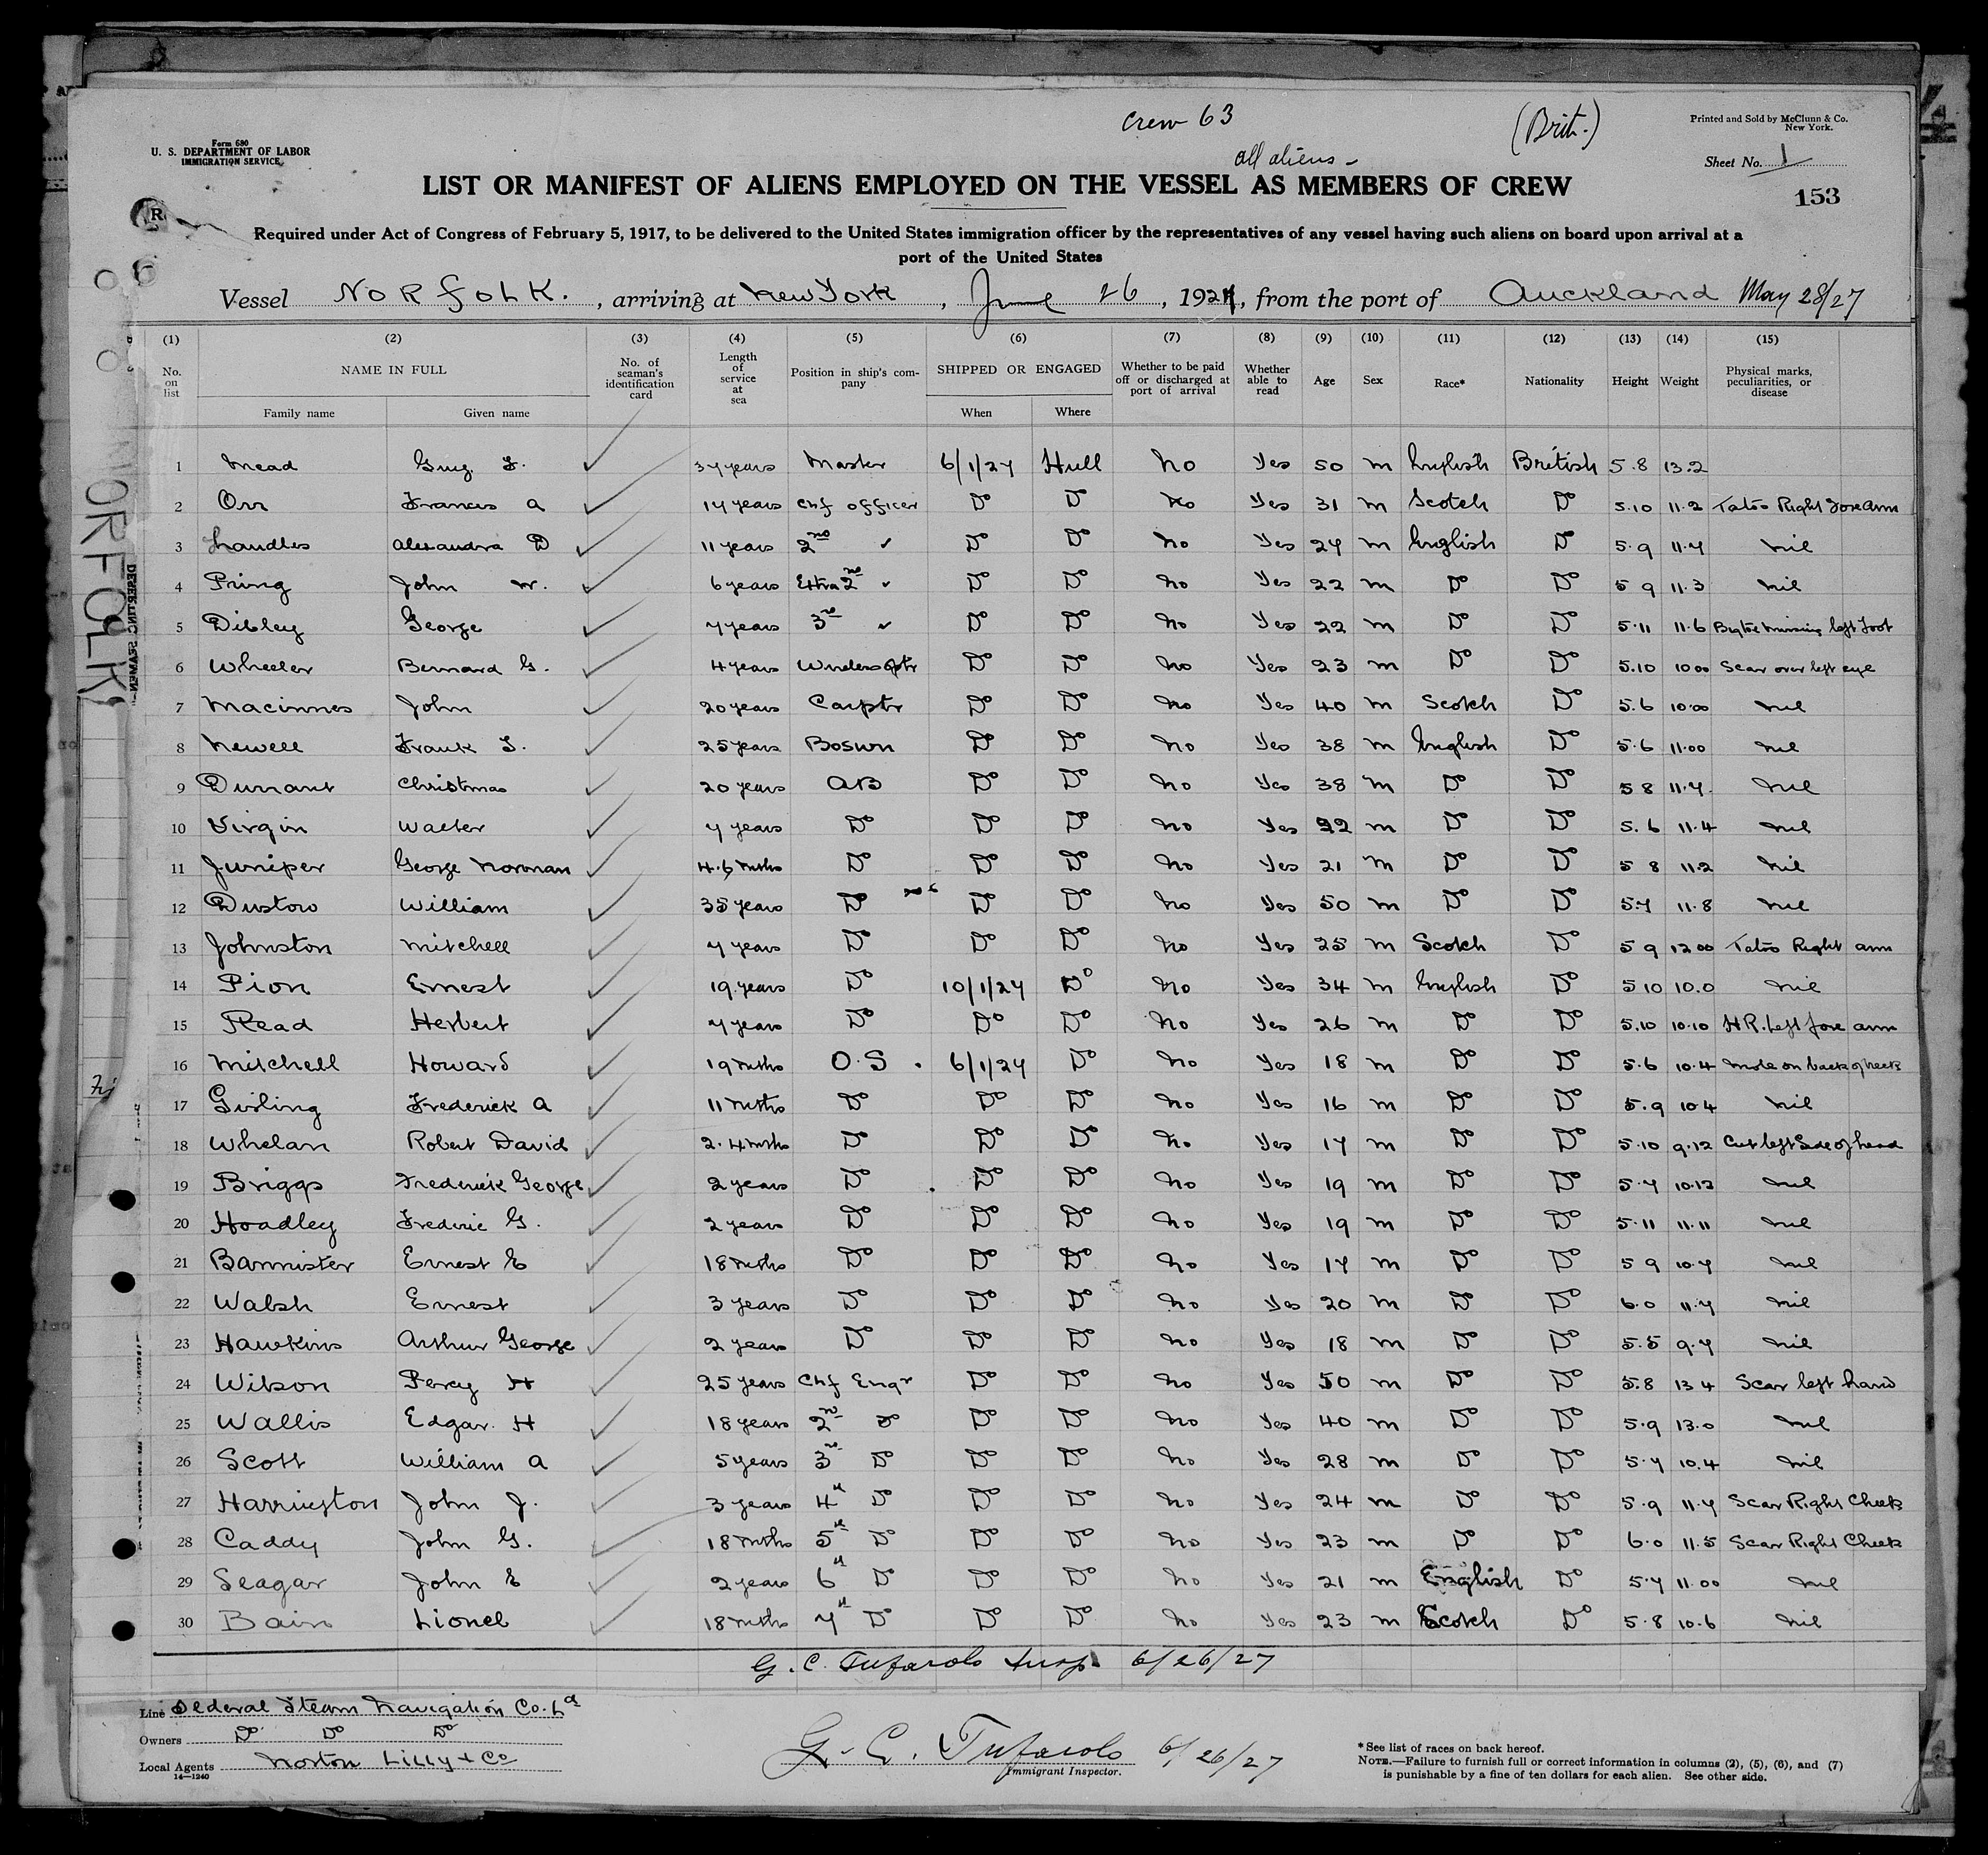 crew 63
(Brit.)
Printed and Sold by McClunn & Co.
New York.
Form 680
U. S. DEPARTMENT OF LABOR
IMMIGRATION SERVICE
all aliens -
Sheet No. 1
LIST OR MANIFEST OF ALIENS EMPLOYED ON THE VESSEL AS MEMBERS OF CREW
153
Required under Act of Congress of February 5, 1917, to be delivered to the United States immigration officer by the representatives of any vessel having such aliens on board upon arrival at a
port of the United States
Vessel NORFOLK. , arriving at New York , June 26 , 1927, from the port of Auckland May 28/27
(1) (2) (3) (4) (5) (6) (7) (8) (9) (10) (11) (12) (13) (14) (15)
No. on list NAME IN FULL Family name Given name No. of seaman's identification card Length of service at sea Position in ship's company SHIPPED OR ENGAGED When Where Whether to be paid off or discharged at port of arrival Whether able to read Age Sex Race* Nationality Height Weight Physical marks, peculiarities, or disease
1 Mead Guy F. 37 years Master 6/1/27 Hull No Yes 50 m English British 5.8 13.2
2 Orr Francis A 17 years Chf officer Do Do No Yes 31 m Scotch Do 5.10 11.2 Tatoo Right Fore Arm
3 Landles Alexandra D 11 years 2nd Do Do No Yes 27 m English Do 5.9 11.7 nil
4 Pring John W. 6 years Extra 2nd Do Do No Yes 22 m Do Do 5 9 11.3 nil
5 Dibley George 7 years 3rd Do Do No Yes 22 m Do Do 5.11 11.6 Big toe missing left Foot
6 Wheeler Bernard G. 4 years Wireless optr Do Do No Yes 23 m Do Do 5.10 10 00 Scar over left eye
7 Macinnes John 20 years Carptr Do Do No Yes 40 m Scotch Do 5.6 10.00 nil
8 Newell Frank F. 25 years Boswn Do Do No Yes 38 m English Do 5.6 11.00 nil
9 Durrant Christmas 20 years AB Do Do No Yes 38 m Do Do 5 8 11.7. nil
10 Virgin Walter 7 years Do Do Do No Yes 22 m Do Do 5.6 11.4 nil
11 Juniper George Norman 4.6 mths Do Do Do No Yes 21 m Do Do 5 8 11.2 nil
12 Dustow William 35 years Do Do Do No Yes 50 m Do Do 5.7 11.8 nil
13 Johnston Mitchell 7 years Do Do Do No Yes 25 m Scotch Do 5 9 12 00 Tatoo Right arm
14 Pion Ernest 19 years Do 10/1/27 Do No Yes 34 m English Do 5 10 10.0 nil
15 Read Herbert 7 years Do Do Do No Yes 26 m Do Do 5.10 10.10 H R. Left fore arm
16 Mitchell Howard 19 mths O.S. 6/1/27 Do No Yes 18 m Do Do 5.6 10.4 mole on back of neck
17 Girling Frederick A 11 mths Do Do Do No Yes 16 m Do Do 5.9 10.4 nil
18 Whelan Robert David 2.4 mths Do Do Do No Yes 17 m Do Do 5.10 9.12 Cut left Side of head
19 Briggs Frederick George 2 years Do Do Do No Yes 19 m Do Do 5.7 10.12 nil
20 Hoadley Frederic G. 2 years Do Do Do No Yes 19 m Do Do 5.11 11.11 nil
21 Bannister Ernest E 18 mths Do Do Do No Yes 17 m Do Do 5 9 10.7 nil
22 Walsh Ernest 3 years Do Do Do No Yes 20 m Do Do 6.0 11.7 nil
23 Hawkins Arthur George 2 years Do Do Do No Yes 18 m Do Do 5.5 9.7 nil
24 Wilson Percy H 25 years Chf Engr Do Do No Yes 50 m Do Do 5.8 13 4 Scar left hand
25 Wallis Edgar. H 18 years 2nd Do Do Do No Yes 40 m Do Do 5.9 13.0 nil
26 Scott William A 5 years 3rd Do Do Do No Yes 28 m Do Do 5.7 10.4 nil
27 Harrington John J. 3 years 4th Do Do Do No Yes 24 m Do Do 5.9 11.7 Scar Right Cheek
28 Caddy John G. 18 mths 5th Do Do Do No Yes 23 m Do Do 6.0 11.5 Scar Right Cheek
29 Seagar John E 2 years 6th Do Do Do No Yes 21 m English Do 5.7 11.00 nil
30 Bain Lionel 18 mths 7th Do Do Do No Yes 23 m Scotch Do 5.8 10.6 nil
G. C. Tufarolo Insp. 6/26/27
Line Federal Steam Navigation Co. Ld
Owners Do Do Do
Local Agents Norton Lilly & Co
14—1240
G. C. Tufarolo 6/26/27
Immigrant Inspector.
*See list of races on back hereof.
NOTE.—Failure to furnish full or correct information in columns (2), (5), (6), and (7)
is punishable by a fine of ten dollars for each alien. See other side.
NORFOLK
DESERTING SEAMEN